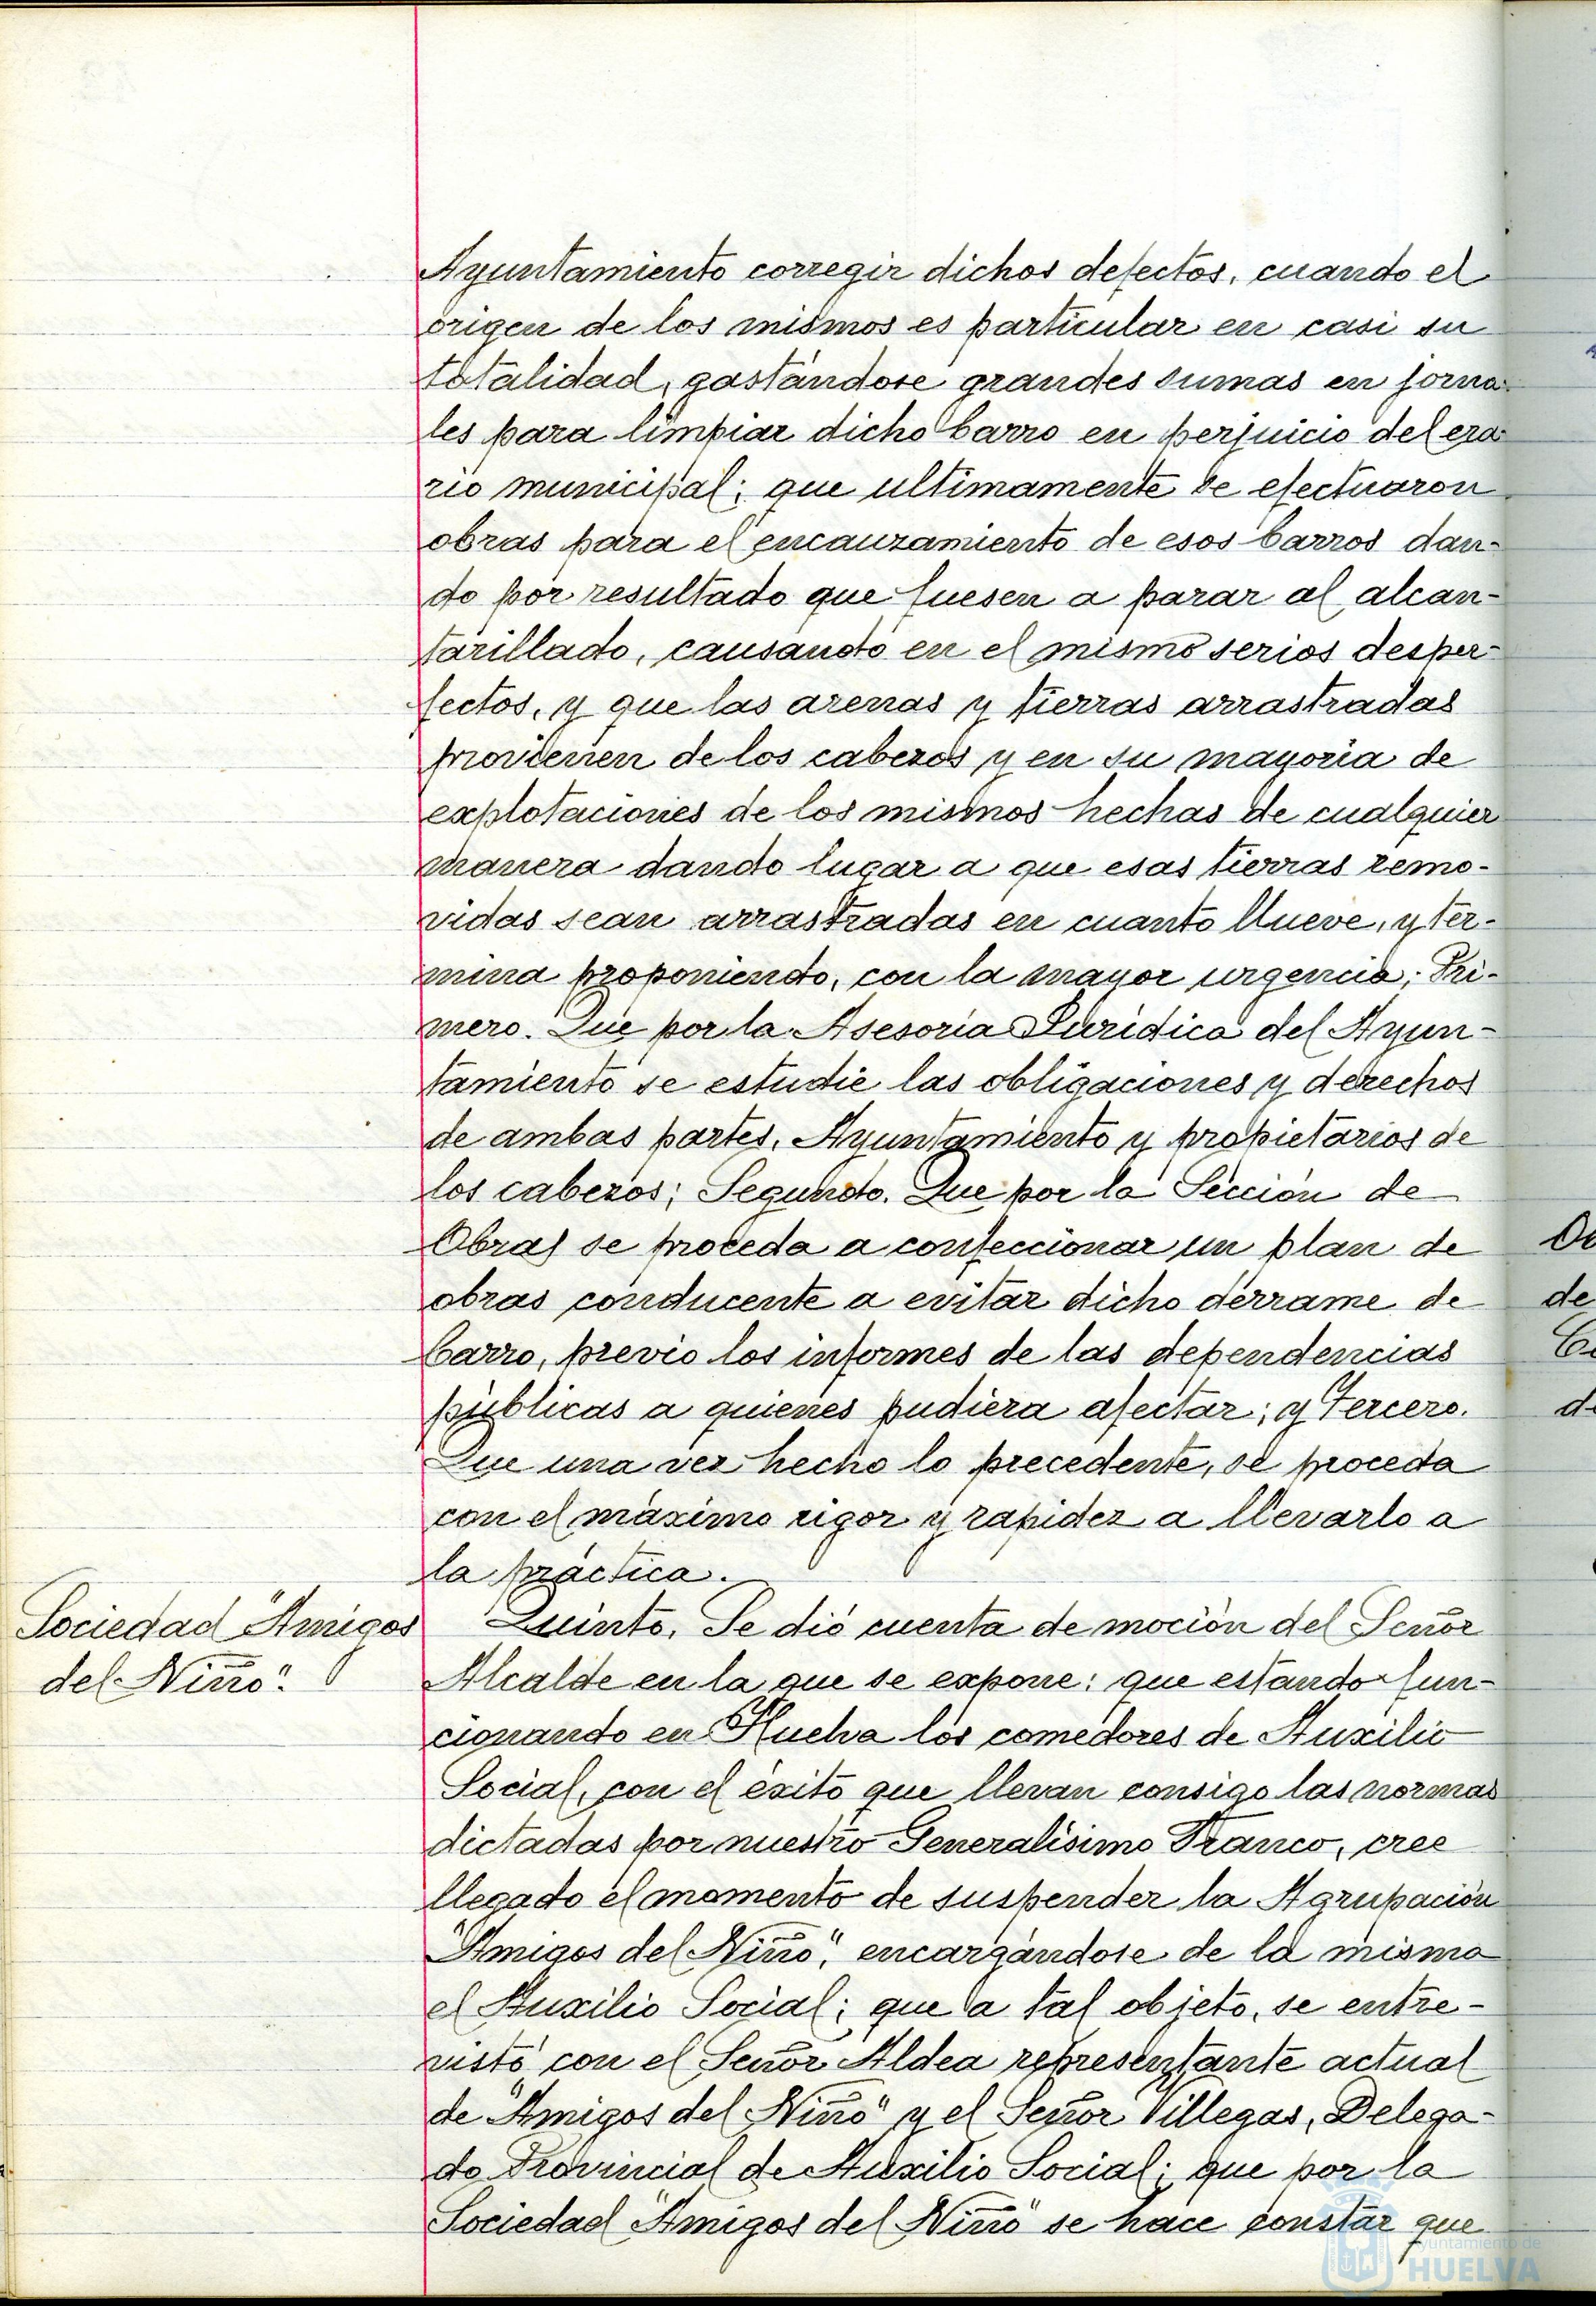 Ayuntamiento corregir dichos defectos, cuando el
origen de los mismos es particular en casi su
totalidad, gastándose grandes sumas en jorna-
les para limpiar dicho barro en perjuicio del era-
rio municipal; que ultimamente se efectuaron
obras para el encauzamiento de esos barros dan-
do por resultado que fuesen a parar al alcan-
tarillado, causando en el mismo serios desper-
fectos, y que las arenas y tierras arrastradas
provienen de los cabezos y en su mayoria de
explotaciones de los mismos hechas de cualquier
manera dando lugar a que esas tierras remo-
vidas sean arrastradas en cuanto llueve, y ter-
mina proponiendo, con la mayor urgencia; Pri-
mero. Que por la Asesoria Juridica del Ayun-
tamiento se estudie las obligaciones y derechos
de ambas partes, Ayuntamiento y propietarios de
los cabezos; Segundo. Que por la Sección de
Obras se proceda a confeccionar un plan de
obras conducente a evitar dicho derrame de
barro, previo los informes de las dependencias
públicas a quienes pudiera afectar; y Tercero.
Que una vez hecho lo precedente, se proceda
con el máximo rigor y rapidez a llevarlo a
la práctica.
Sociedad "Amigos
del Niño".
Quinto. Se dió cuenta de moción del Señor
Alcalde en la que se expone: que estando fun-
cionando en Huelva los comedores de Auxilio
Social, con el éxito que llevan consigo las normas
dictadas por nuestro Generalisimo Franco, cree
llegado el momento de suspender la Agrupación
"Amigos del Niño", encargándose de la misma
el Auxilio Social; que a tal objeto, se entre-
vistó con el Señor Aldea representante actual
de "Amigos del Niño" y el Señor Villegas, Delega-
do Provincial de Auxilio Social; que por la
Sociedad "Amigos del Niño" se hace constar que
de
Ayuntamiento de
HUELVA